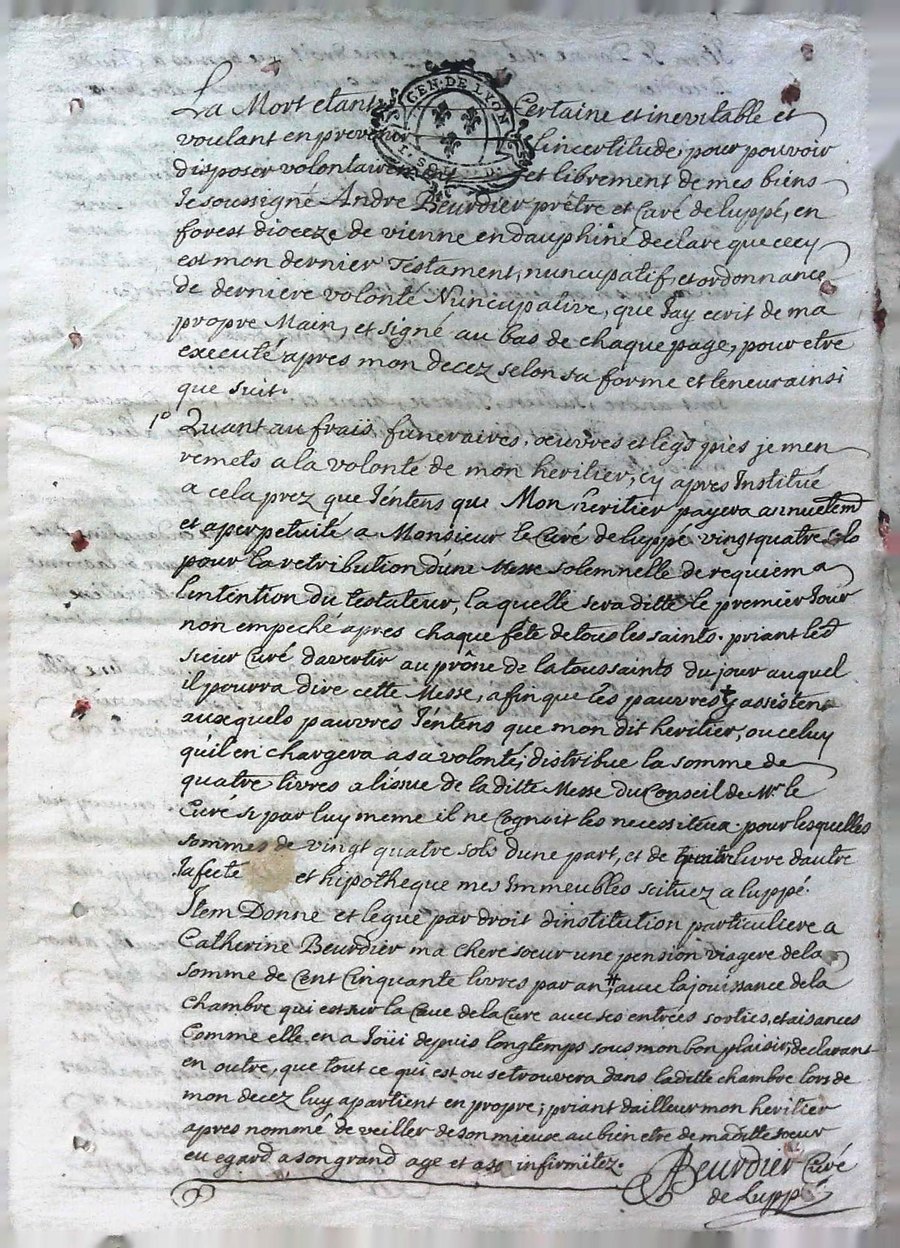 GEN. DE LYON
La Mort etant Certaine et inevitable et
voulant en prevenir lincertitude, pour pouvoir
disposer volontairement et librement de mes biens
Je soussigné André Beurdier prêtre et Curé de luppé, en
forest dioceze de vienne en dauphiné declare que cecy
est mon dernier Testament, nuncupatif, et ordonnance
de derniere volonté Nuncupative, que J'ay ecrit de ma
propre Main, et signé au bas de chaque page, pour etre
executé apres mon decez selon sa forme et teneur ainsi
que suit.
1° Quant au frais funeraires, oeuvres et legs pies je men
remets a la volonté de mon heritier, cy apres Institué
a cela prez que J'éntens que Mon heritier payera annuelemt
et a perpetuité a Monsieur le Curé de luppé vingt quatre solo
pour la retribution d'une Messe solemnelle de requiem a
l'intention du testateur, laquelle sera ditte le premier Jour
non empeché apres chaque fête de tous les saints. priant led
sieur Curé davertir au prône de la toussaints du jour auquel
il pourra dire cette Messe, afin que les pauvres y assistent
auxquels pauvres J'éntens que mon dit heritier, ou celuy
qu'il en chargera a sa volonté, distribue la somme de
quatre livres a lissue de la ditte Messe du Conseil de Mr le
Curé si par luy meme il ne Cognoit les necessiteux. pour lesquelles
sommes de vingt quatre sols dune part, et de quatre livre dautre
Jafecte et hipotheque mes Immeubles scituez a luppé.
Item Donne et legue par droit d'institution particuliere a
Catherine Beurdier ma chere soeur une pension viagere de la
somme de Cent Cinquante livres par an, avec la jouissance de la
chambre qui est sur la Cave de la Cure avec ses entrées sorties, et aisances
Comme elle en a Joüi depuis longtemps sous mon bon plaisir, declarant
en outre, que tout ce qui est ou se trouvera dans laditte chambre lors de
mon decez luy apartient en propre; priant dailleur mon heritier
apres nommé de veiller de son mieux au bien etre de maditte soeur
eu egard a son grand age et a ses infirmitez.
Beurdier Curé
de Luppé